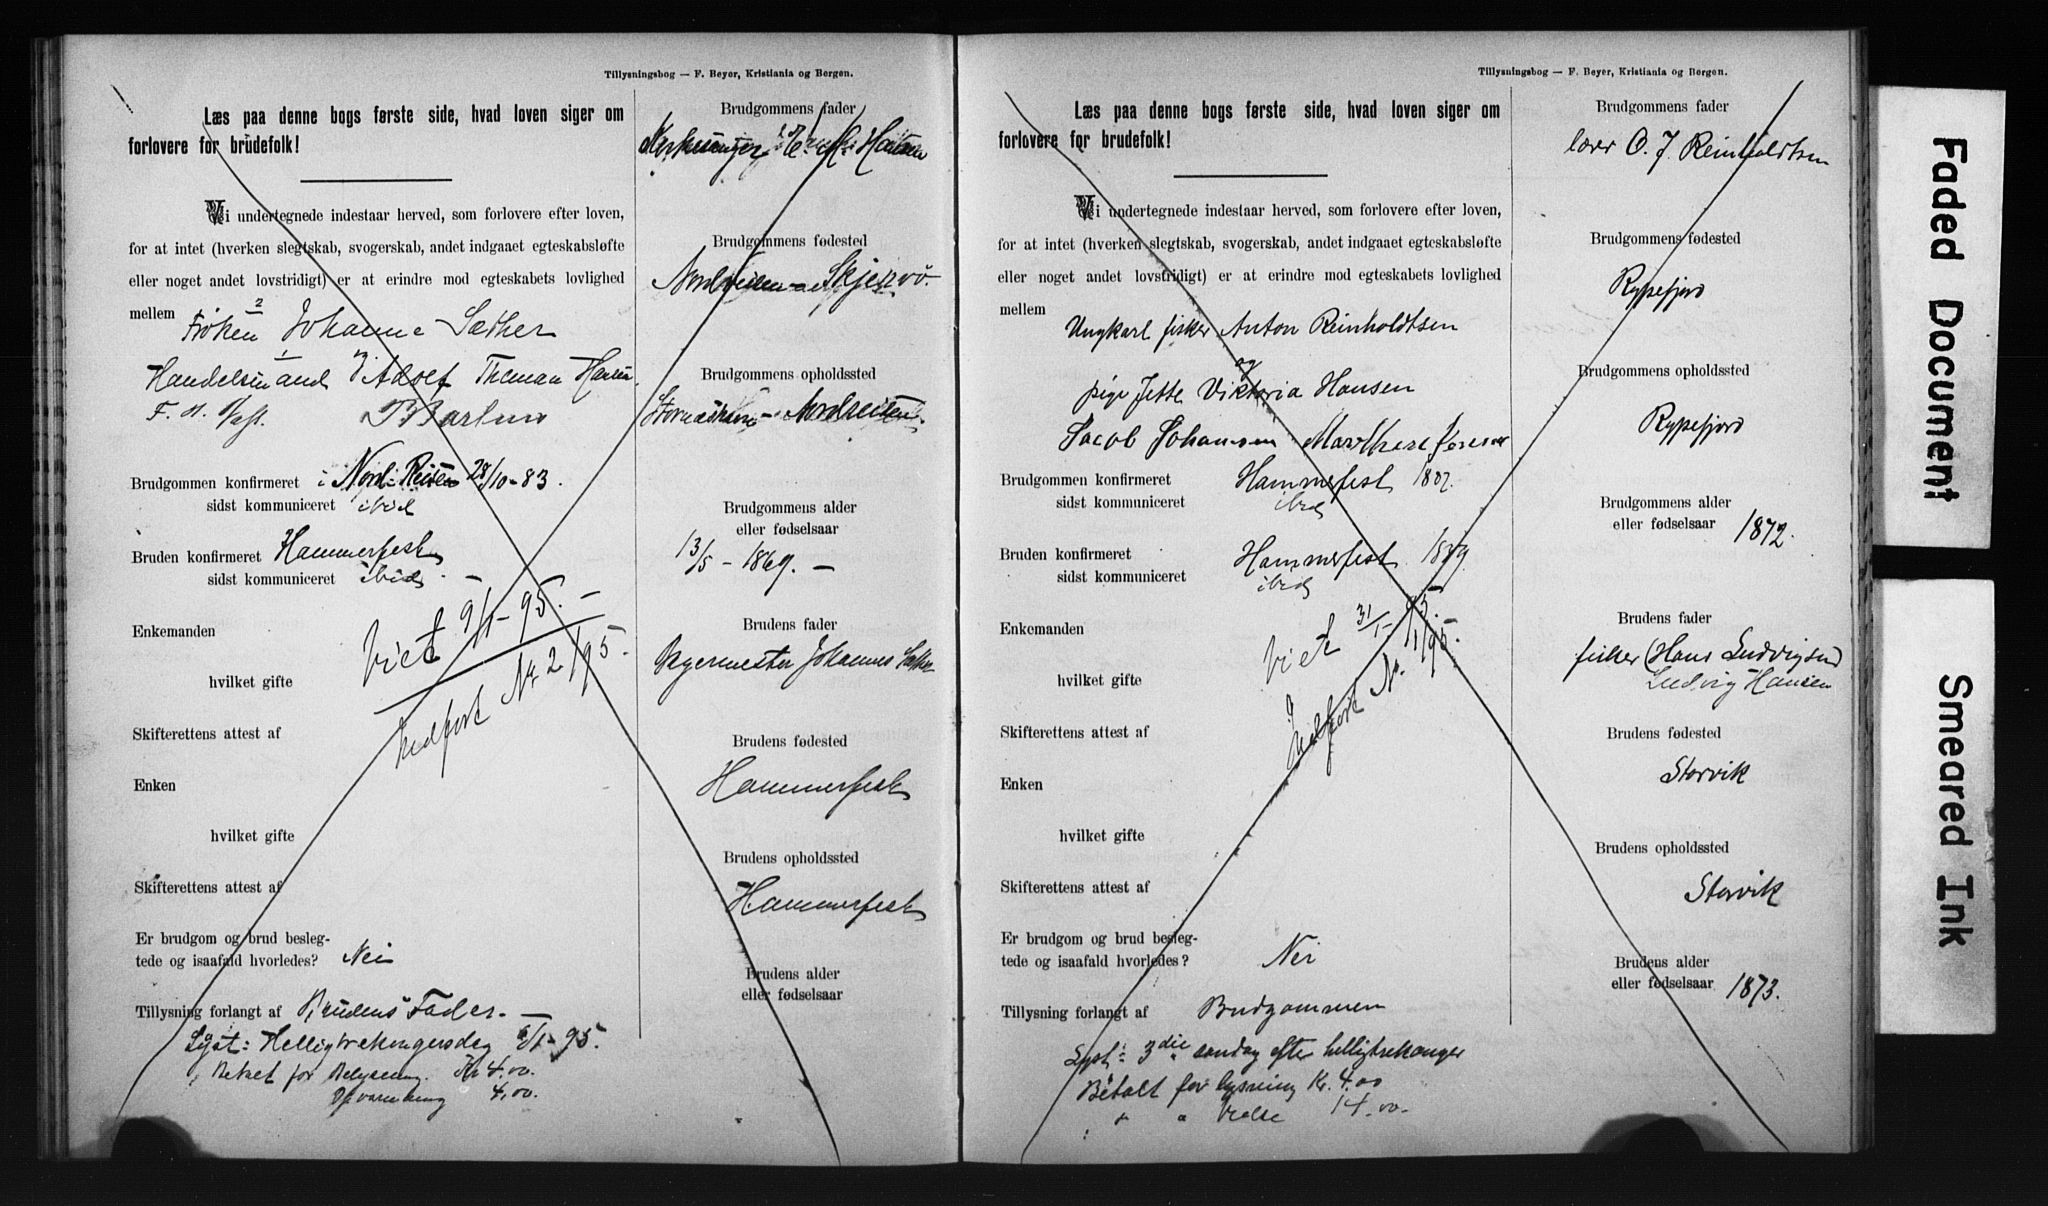 Tillysningsbog — F. Beyer, Kristiania og Bergen.
Læs paa denne bogs første side, hvad loven siger om
forlovere for brudefolk!
Vi undertegnede indestaar herved, som forlovere efter loven,
for at intet (hverken slegtskab, svogerskab, andet indgaaet egteskabsløfte
eller noget andet lovstridigt) er at erindre mod egteskabets lovlighed
mellem
2
Frøken Johanna Sæther
1
Handelsmand Adolf Thoman Hansen
F. H.
Brudgommen konfirmeret i Nord-Reisen 28/10-83.
sidst kommuniceret ibid
Bruden konfirmeret Hammerfest
sidst kommuniceret ibid
Viet 9/1-95.
Enkemanden
hvilket gifte
Indført Nr. 2/95.
Skifterettens attest af
Enken
hvilket gifte
Skifterettens attest af
Er brudgom og brud besleg-
tede og isaafald hvorledes? Nei
Tillysning forlangt af Brudens Fader.
Lyst: Helligtrekongersdag 6/1-95.
for Kr 4.00.
4,00.
Brudgommens fader
Hansen
Brudgommens fødested
Nordreisen Skjervö.
Brudgommens opholdssted
Nordreisen.
Brudgommens alder
eller fødselsaar
13/5-1869.
Brudens fader
Johannes Sæther
Brudens fødested
Hammerfest
Brudens opholdssted
Hammerfest
Brudens alder
eller fødselsaar
Tillysningsbog — F. Beyer, Kristiania og Bergen.
Læs paa denne bogs første side, hvad loven siger om
forlovere for brudefolk!
Vi undertegnede indestaar herved, som forlovere efter loven,
for at intet (hverken slegtskab, svogerskab, andet indgaaet egteskabsløfte
eller noget andet lovstridigt) er at erindre mod egteskabets lovlighed
mellem
Ungkarl fisker Anton Reinholdtsen
og
pige Jette Viktoria Hansen
Jacob Johansen
Brudgommen konfirmeret Hammerfest 1887.
sidst kommuniceret ibid
Bruden konfirmeret Hammerfest 1889.
sidst kommuniceret ibid
Viet 31/1-95.
Enkemanden
hvilket gifte
Indført Nr. 1/95.
Skifterettens attest af
Enken
hvilket gifte
Skifterettens attest af
Er brudgom og brud besleg-
tede og isaafald hvorledes? Nei
Tillysning forlangt af Brudgommen
Lyst: 3die søndag efter helligtrekonger
Betalt for lysning Kr. 4.00
" " Vielse 14.00.
Brudgommens fader
O. J. Reinholdtsen
Brudgommens fødested
Rypefjord
Brudgommens opholdssted
Rypefjord
Brudgommens alder
eller fødselsaar 1872.
Brudens fader
fisker (Hans Ludvigsen)
Ludvig Hansen
Brudens fødested
Storvik
Brudens opholdssted
Storvik
Brudens alder
eller fødselsaar 1873.
Faded Document
Smeared Ink